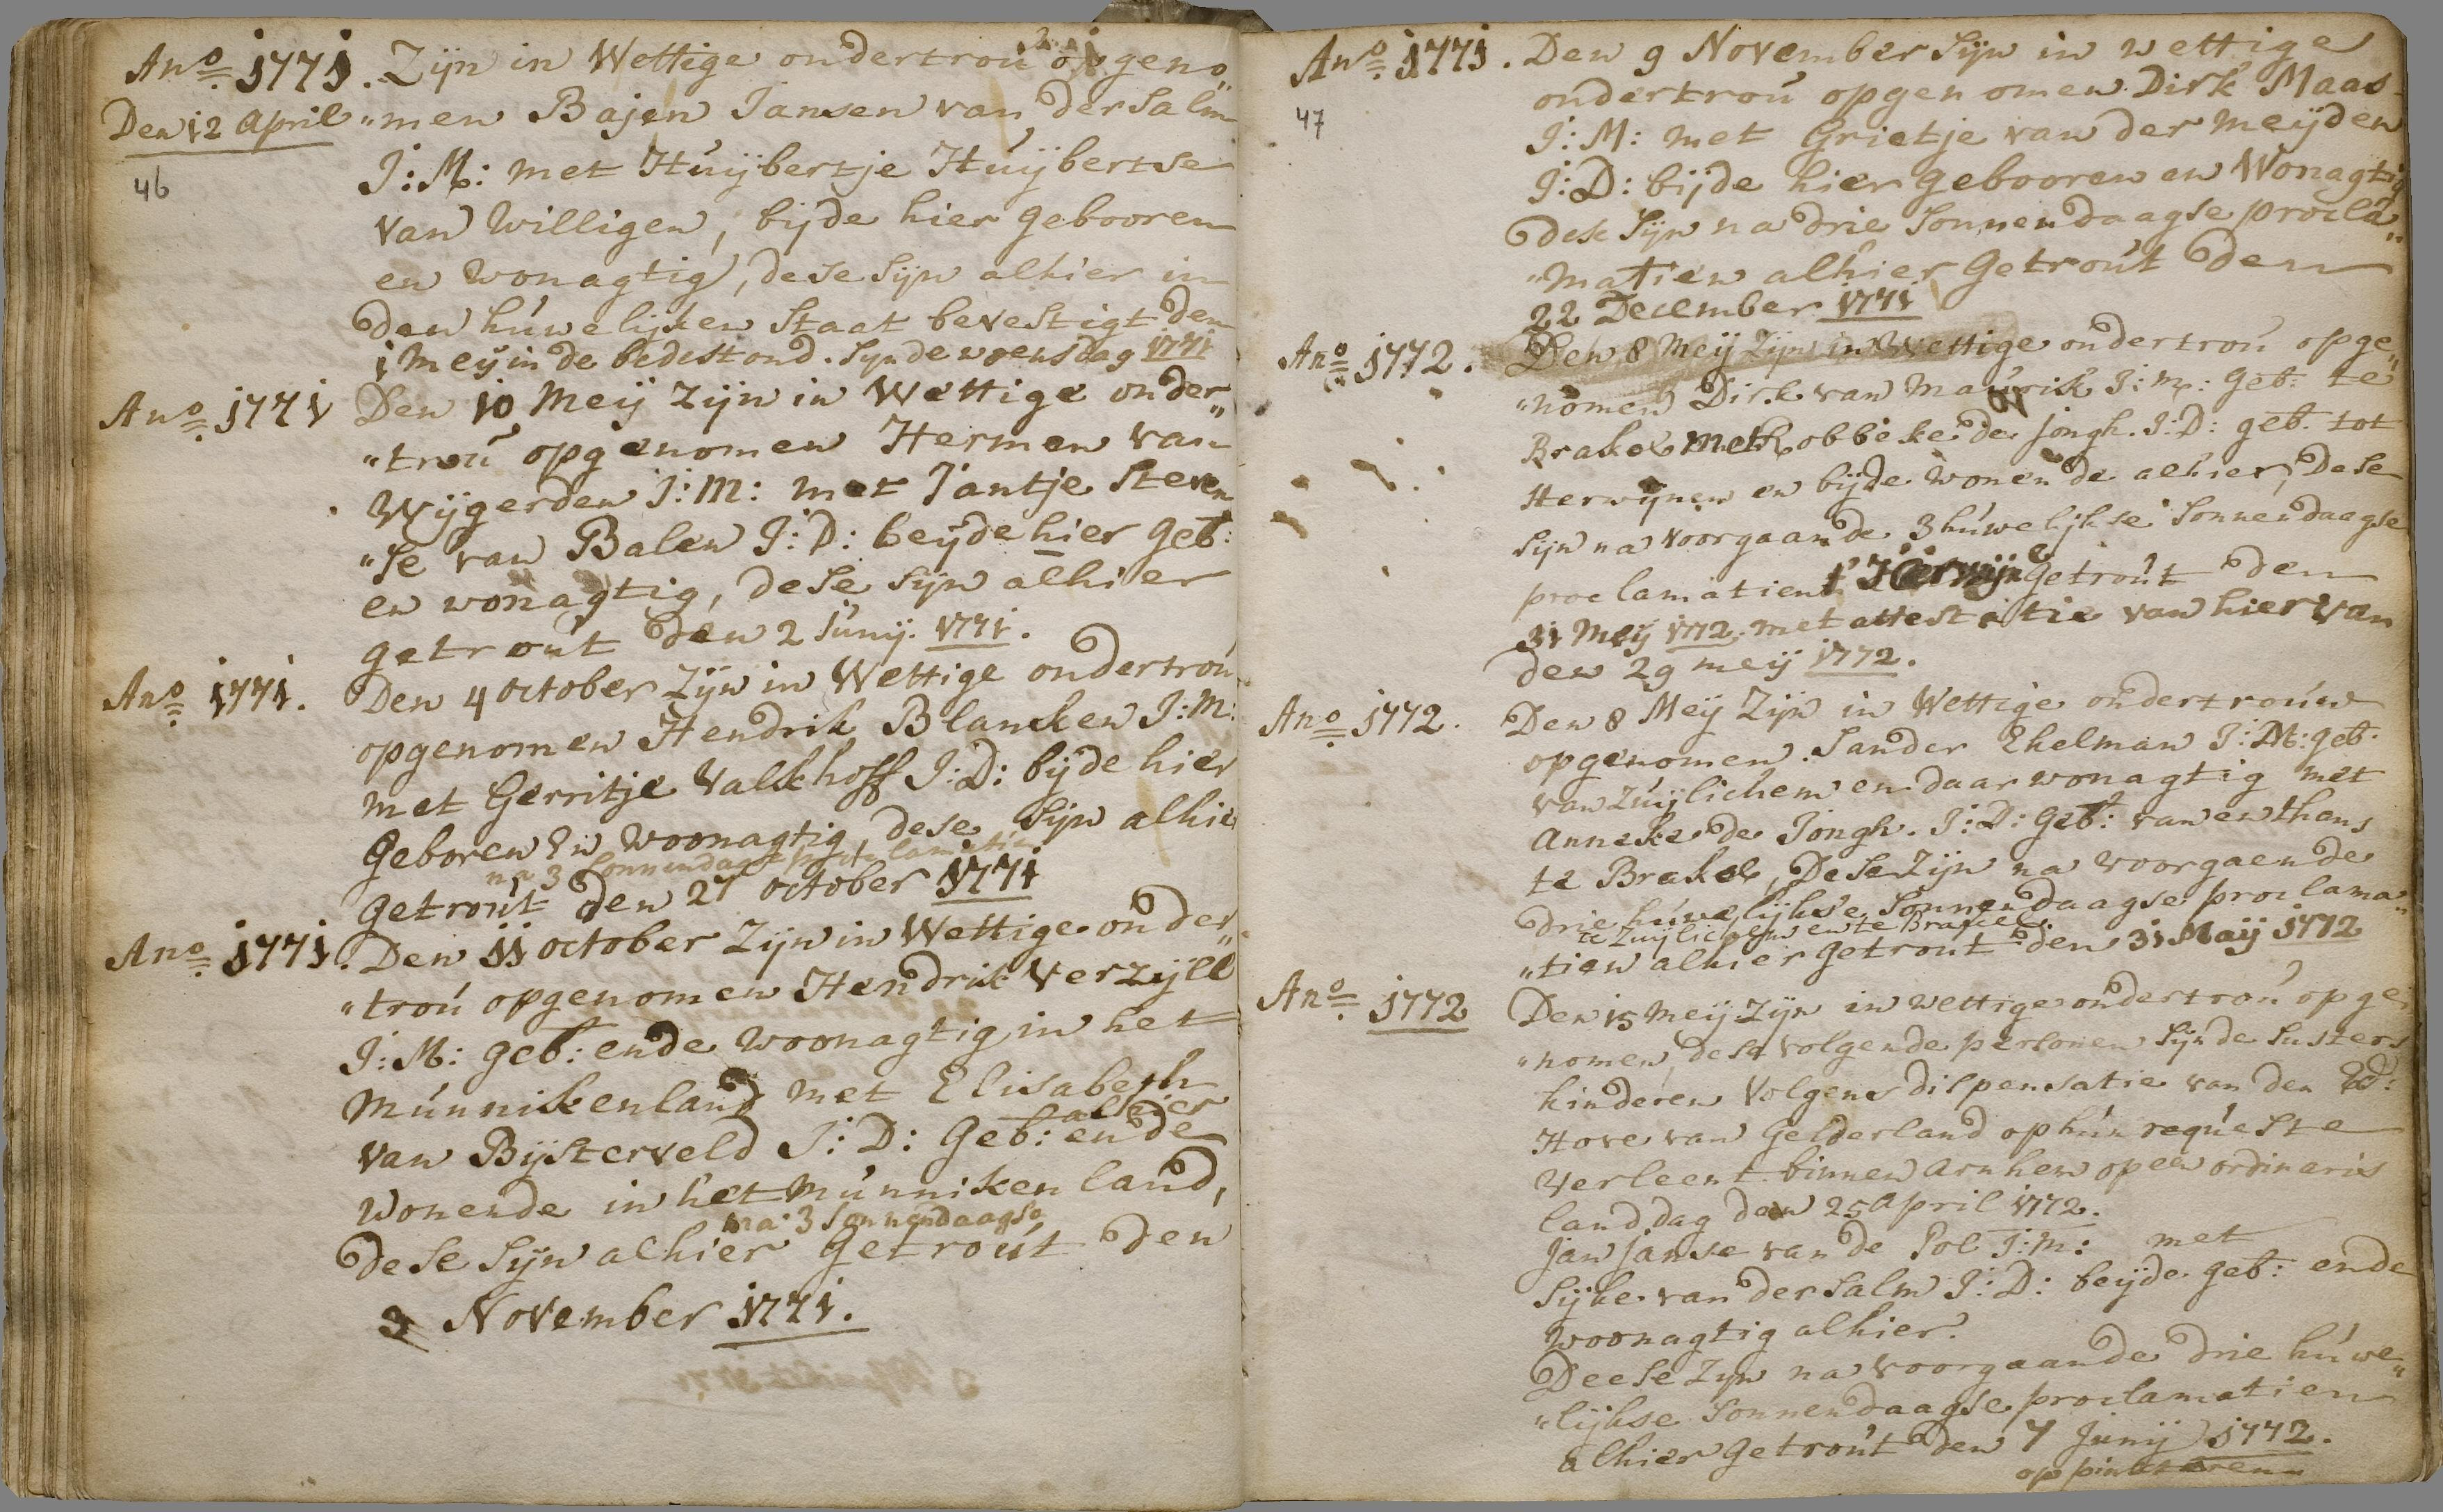 Ano 1771. Zijn in Wettige ondertroú opgeno„
Den 12 April „men Bajen Jansen van der Salm
46
J: M: met Húijbertje Húijbertse
van Willigen, bijde hier gebooren
en wonagtig, dese sijn alhier in
den húwelijken Staat bevestigt den
1 Meij in de bedestond. Synde woensdag 1771
Ano 1771 Den 10 Meij Zijn in Wettige onder„
„troú opgenomen Hermen van
Wijgerden J: M: met Jantje Steven
„se van Balen J: D: beijde hier geb:
en wonagtig, dese sijn alhier
getroút den 2 Júnij 1771.
Ano 1771. Den 4 october Zijn in Wettige ondertroú
opgenomen Hendrik Blancken J: M:
met Gerritje Valkhoff J: D: bijde hier
Geboren En woonagtig, dese sijn alhier
na 3 Sonnendagse proclamatien
getroút den 27 october 1771
Ano 1771. Den 11 october Zijn in Wettige onder„
„troú opgenomen Hendrik Verzijll
J: M: geb: ende woonagtig in het
Múnnikenland met Elisabeth
alhier
van Bijsterveld J: D: Geb: ende
Wonende in het Múnnikenland,
na 3 Sonnendaagse
dese sijn alhier getroút den
3 November 1771.

Ano 1771. Den 9 November sijn in wettige
47
ondertroú opgenomen Dirk Maas
J: M: met Grietje van der Meijden
J: D: bijde hier gebooren en Wonagtig
dese sijn na drie Sonnendaagse procla„
„matien alhier Getroút den
22 December 1771
Ano 1772. Den 8 Meij Zijn in Wettige ondertroú opge„
„nomen Dirk van Maúrik J: M: geb: te
Brakel met Kobbeke de jongh. J: D: geb. tot
Herwijnen en bijde wonende alhier, Dese
sijn na voorgaande 3 húwelijkse Sonnendaagse
proclamatien t' Herwijne getroút den
31 Meij 1772. met attestatie van hier van
den 29 meij 1772.
Ano 1772. Den 8 Meij Zijn in Wettige ondertroúw
opgenomen. Sander Ekelman J: M: geb.
van Zúijlichem en daar wonagtig met
Anneke de Jongh. J: D: Geb: van en thans
te Brakel, Dese Zijn na voorgaende
drie húwelijkse Sonnendaagse proclama„
te Zúijlichem en te Brakel
„tien alhier getrout den 31 Maij 1772
Ano 1772 Den 15 Meij Zijn in wettige ondertroú opge„
„nomen, dese volgende persoonen sijnde susters
kinderen volgens dispensatie van den Ed:
Hove van Gelderland op hún reqúeste
Verleent binnen Arnhem op een ordinaris
landdag den 25 April 1772.
Jan Janse van de Pol J: M: met
Sijke van der Salm J: D: beijde geb: ende
woonagtig alhier.
Deese Zyn na voorgaande drie húwe„
„lijkse Sonnendaagse proclamatien
alhier getroút den 7 Junij 1772.
op pinksteren